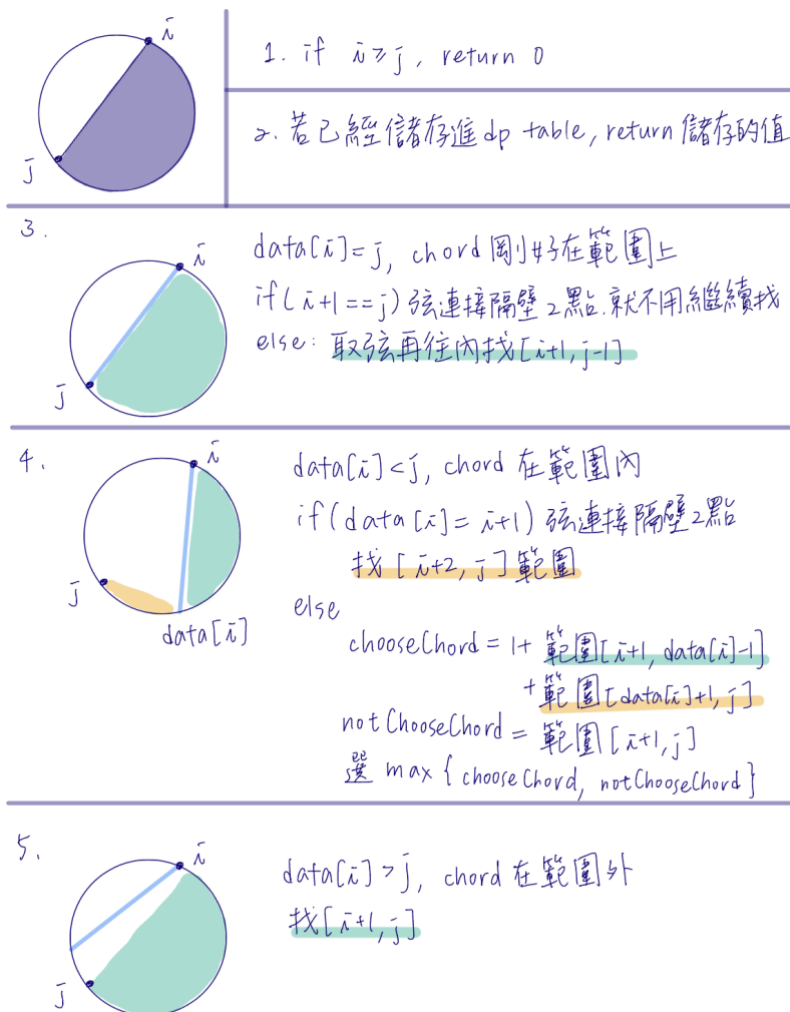 i
j
1. if i≥j, return 0
2. 若已經儲存進 dp table, return 儲存的值
3.
i
j
data[i]=j, chord 剛好在範圍上
if(i+1==j) 弦連接隔壁2點.就不用繼續找
else: 取弦再往內找[i+1, j-1]
4.
i
j
data[i]
data[i]<j, chord 在範圍內
if(data[i]=i+1) 弦連接隔壁2點
找[i+2, j]範圍
else
chooseChord = 1+ 範圍[i+1, data[i]-1]
+範圍[data[i]+1, j]
notChooseChord = 範圍[i+1, j]
選 max{chooseChord, notChooseChord}
5.
i
j
data[i]>j, chord 在範圍外
找[i+1, j]